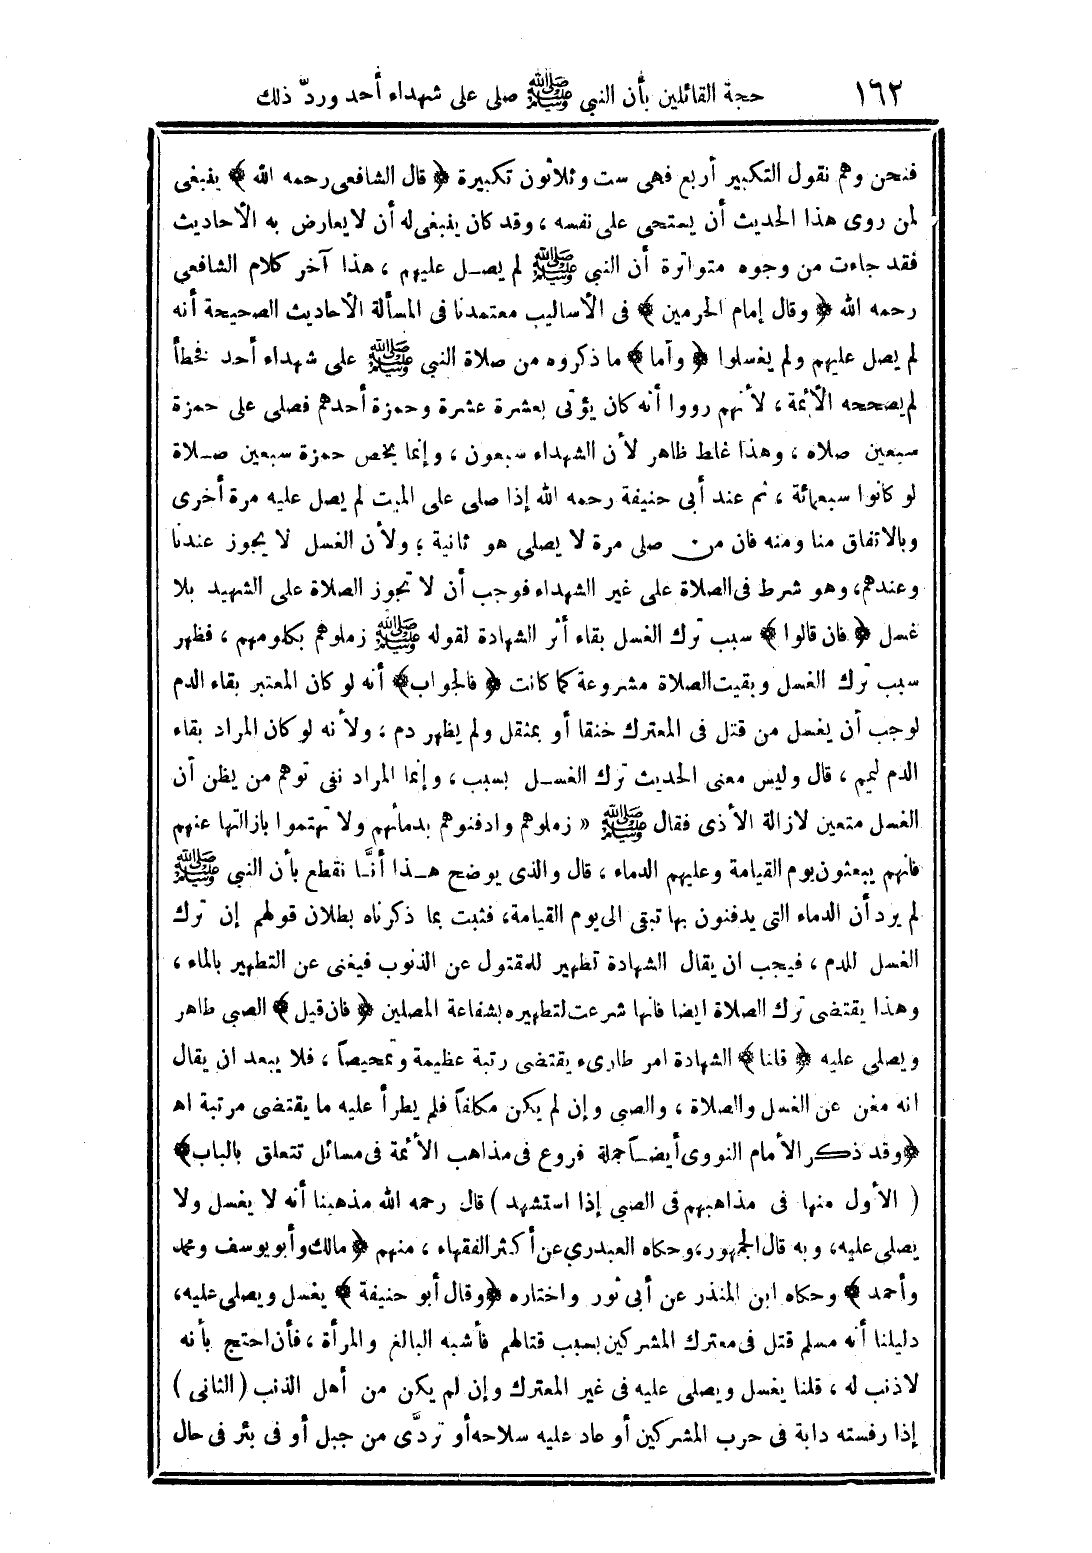 ١٦٢ حجة القائلين بأن النبي ﷺ صلى على شهداء أحد وردّ ذلك
فنحن وهم نقول التكبير أربع فهى ست وثلاثون تكبيرة ﴿ قال الشافعى رحمه الله ﴾ ينبغى
لمن روى هذا الحديث أن يستحى على نفسه ، وقد كان ينبغى له أن لا يعارض به الأحاديث
فقد جاءت من وجوه متواترة أن النبي ﷺ لم يصل عليهم ، هذا آخر كلام الشافعي
رحمه الله ﴿ وقال إمام الحرمين ﴾ فى الأساليب معتمدنا فى المسألة الأحاديث الصحيحة أنه
لم يصل عليهم ولم يغسلوا ﴿ وأما ﴾ ما ذكروه من صلاة النبي ﷺ على شهداء أحد فخطأ
لم يصححه الأئمة ، لأنهم رووا أنه كان يؤتى بعشرة عشرة وحمزة أحدهم فصلى على حمزة
سبعين صلاه ، وهذا غلط ظاهر لأن الشهداء سبعون ، وإنما يخص حمزة سبعين صلاة
لو كانوا سبعمائة ، ثم عند أبى حنيفة رحمه الله إذا صلى على الميت لم يصل عليه مرة أخرى
وبالاتفاق منا ومنه فان من صلى مرة لا يصلى هو ثانية ؛ ولأن الغسل لا يجوز عندنا
وعندهم، وهو شرط فى الصلاة على غير الشهداء فوجب أن لا تجوز الصلاة على الشهيد بلا
غسل ﴿ فان قالوا ﴾ سبب ترك الغسل بقاء أثر الشهادة لقوله ﷺ زملوهم بكلومهم ، فظهر
سبب ترك الغسل وبقيت الصلاة مشروعة كما كانت ﴿ فالجواب ﴾ أنه لو كان المعتبر بقاء الدم
لوجب أن يغسل من قتل فى المعترك خنقا أو بمثقل ولم يظهر دم ، ولأنه لو كان المراد بقاء
الدم ليمم ، قال وليس معنى الحديث ترك الغسل بسبب ، وإنما المراد نفى توهم من يظن أن
الغسل متعين لازالة الأذى فقال ﷺ « زملوهم وادفنوهم بدمائهم ولا تهتموا بازالتها عنهم
فانهم يبعثون يوم القيامة وعليهم الدماء ، قال والذى يوضح هذا أنَّا نقطع بأن النبي ﷺ
لم يرد أن الدماء التى يدفنون بها تبقى الى يوم القيامة، فثبت بما ذكرناه بطلان قولهم إن ترك
الغسل للدم ، فيجب ان يقال الشهادة تطهير للمقتول عن الذنوب فيغنى عن التطهير بالماء ،
وهذا يقتضى ترك الصلاة ايضا فانها شرعت لتطهيره بشفاعة المصلين ﴿ فان قيل ﴾ الصبي طاهر
ويصلى عليه ﴿ قلنا ﴾ الشهادة امر طارىء يقتضى رتبة عظيمة وتمحيصاً ، فلا يبعد ان يقال
انه مغن عن الغسل والصلاة ، والصبى وإن لم يكن مكلفاً فلم يطرأ عليه ما يقتضى مرتبة اه
﴿ وقد ذكر الأمام النووى أيضاً جملة فروع فى مذاهب الأئمة فى مسائل تتعلق بالباب ﴾
( الأول منها فى مذاهبهم فى الصبي إذا استشهد ) قال رحمه الله مذهبنا أنه لا يغسل ولا
يصلى عليه، وبه قال الجمهور، وحكاه العبدري عن أكثر الفقهاء ، منهم ﴿ مالك وأبو يوسف ومحمد
وأحمد ﴾ وحكاه ابن المنذر عن أبى ثور واختاره ﴿ وقال أبو حنيفة ﴾ يغسل ويصلى عليه،
دليلنا أنه مسلم قتل فى معترك المشركين بسبب قتالهم فأشبه البالغ والمرأة ، فأن احتج بأنه
لا ذنب له ، قلنا يغسل ويصلى عليه فى غير المعترك وإن لم يكن من أهل الذنب ( الثانى )
إذا رفسته دابة فى حرب المشركين أو عاد عليه سلاحه أو تردَّى من جبل أو فى بئر فى حال